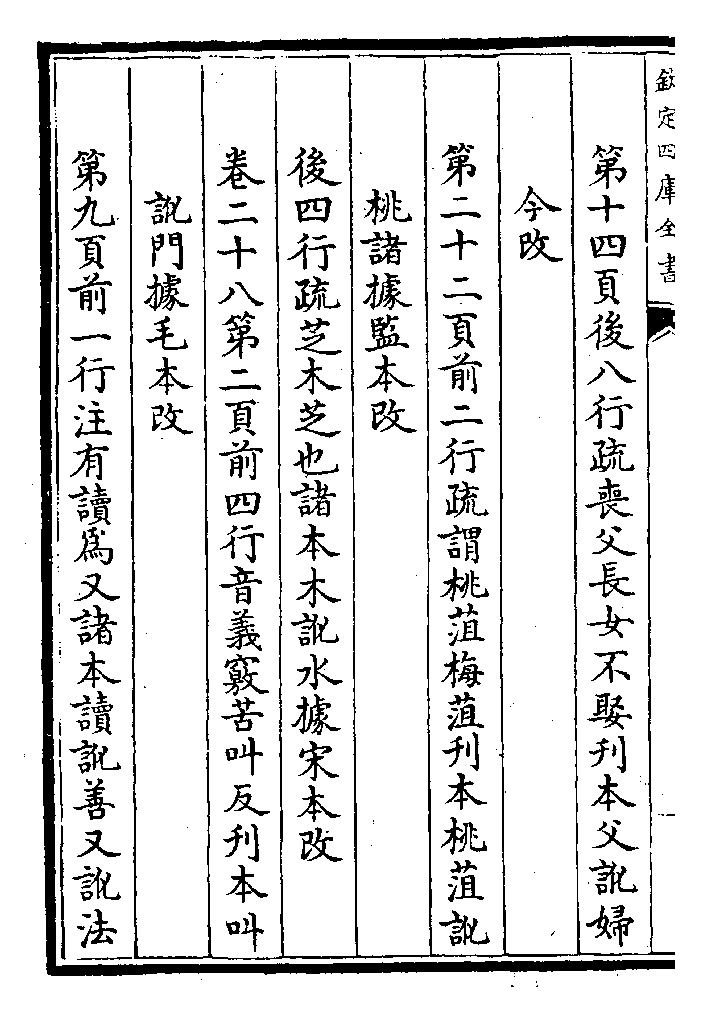 欽定四庫全書
第十四頁後八行疏喪父長女不娶刋本父訛婦
今改
第二十二頁前二行疏謂桃菹梅菹刋本桃菹訛
桃諸據監本改
後四行疏芝木芝也諸本木訛水據宋本改
卷二十八第二頁前四行音義竅苦叫反刋本叫
訛門據毛本改
第九頁前一行注有讀為又諸本讀訛善又訛法